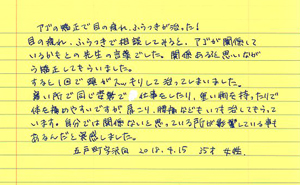 アゴの矯正で目の疲れ、ふらつきが治った!
目の疲れ、ふらつきで相談ししそうと、アゴが関係して
いるかもとの先生の言葉でした。関係あると思いながら
う矯正してもらいました。
すると1回で頭がスッキリして治ってしまいました。
寒い所で同じ姿勢で 仕事をしたり、重い物を持ったりで
体を痛めやすいですが肩こり、腰痛などもいつも治してもらって
います。自分では関係ないと思っている所が影響している事も
あるんだと実感しました。
五戸町字沢向 2018.4.15 35才 女性